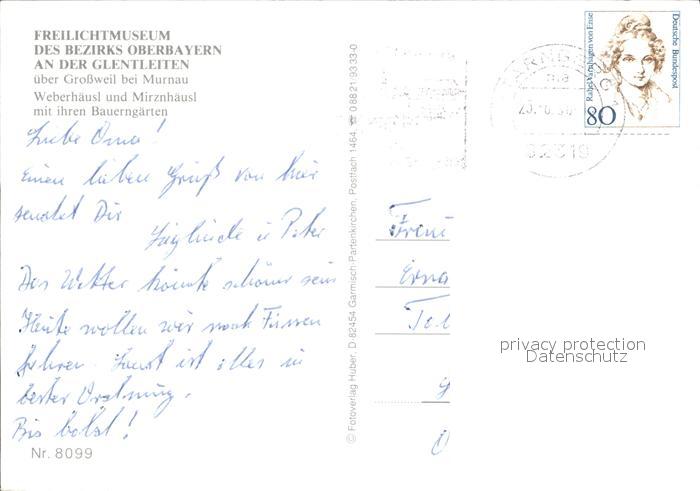 FREILICHTMUSEUM
DES BEZIRKS OBERBAYERN
AN DER GLENTLEITEN
über Großweil bei Murnau
Weberhäusl und Mirznhäusl
mit ihren Bauerngärten
Liebe Oma!
Einen lieben Gruß von hier
sendet Dir
Sieglinde u Peter
Das Wetter könnte schöner sein
Heute wollen wir nach Füssen
fahren. Sonst ist alles in
bester Ordnung.
Bis bald!
Nr. 8099
© Fotoverlag Huber, D-82454 Garmisch-Partenkirchen, Postfach 1464, ☎ 0 88 21/93 33-0
Rahel Varnhagen von Ense
Deutsche Bundespost
80
82319
Erna
privacy protection
Datenschutz